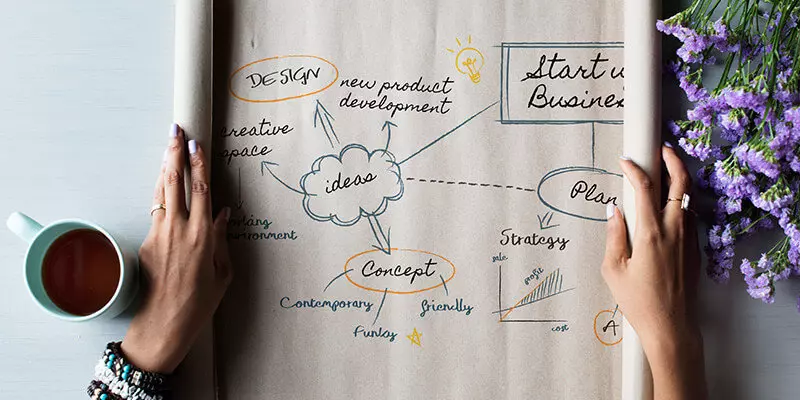 DESIGN
new product
development
Start u
Business
creative
space
ideas
Plan
Strategy
sale
profit
cost
Concept
Contemporary
friendly
Funky
A